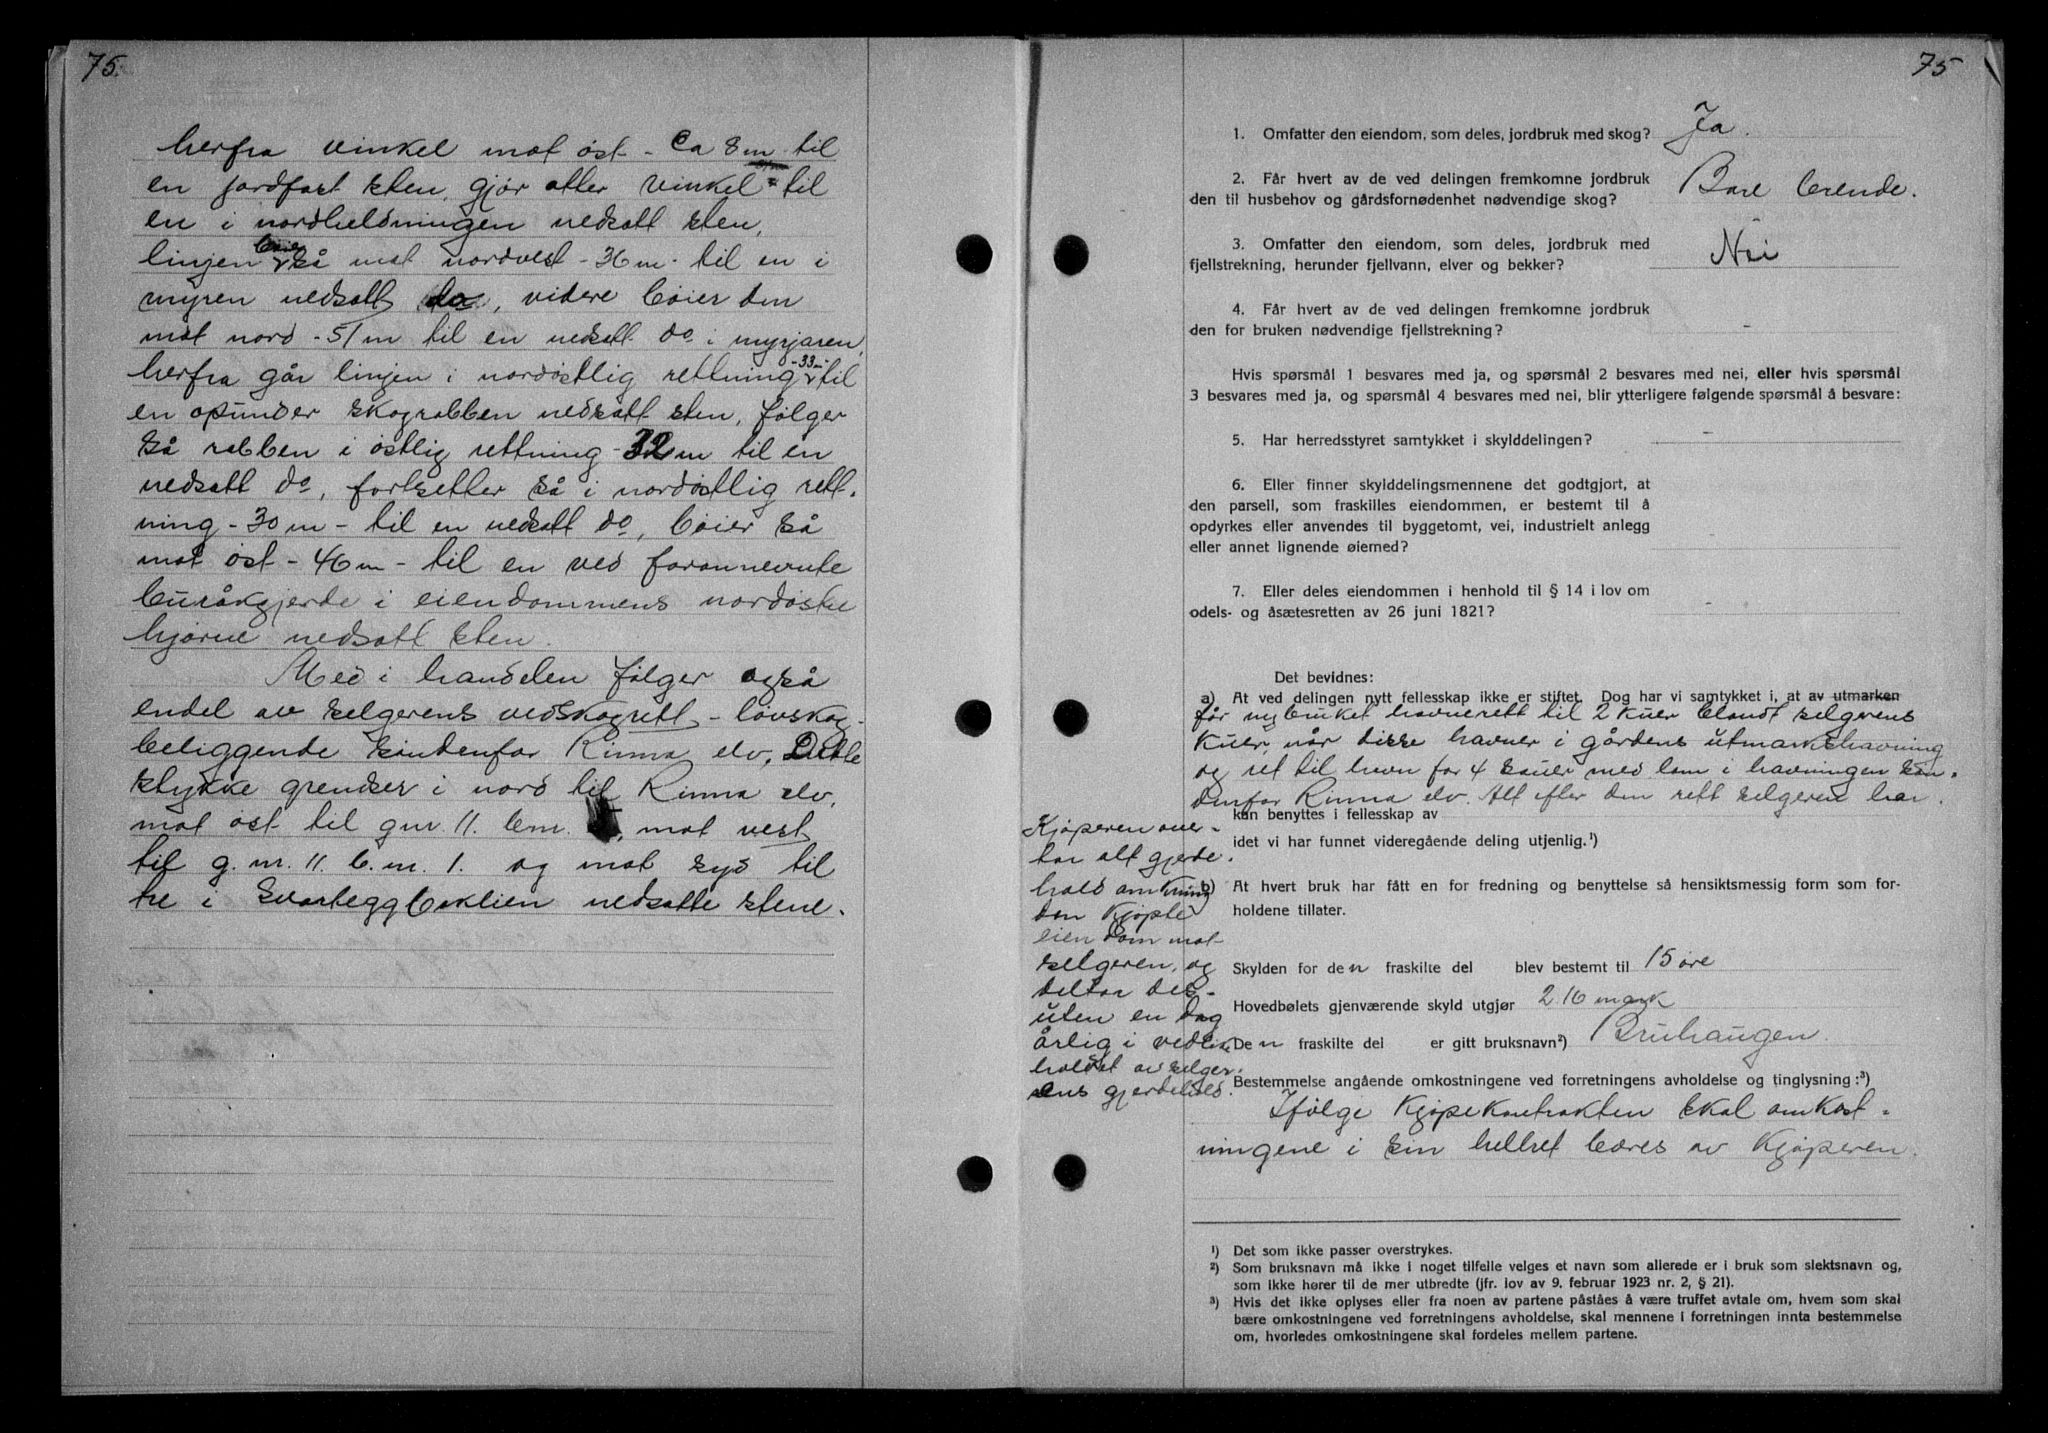 75.
herfra vinkel mot øst - Ca 8 m til
en jordfast sten, gjør atter vinkel til
en i nordheldningen nedsatt sten,
linjen bøier så mot nordvest - 36 m - til en i
myren nedsatt do, videre bøier den
mot nord - 51 m til en nedsatt do i myrjaren,
herfra går linjen i nordøstlig rettning - 33 m - til
en opunder skograbben nedsatt sten, følger
så rabben i østlig rettning - 32 m til en
nedsatt do, fortsetter så i nordøstlig rett-
ning - 30 m - til en nedsatt do, bøier så
mot øst - 46 m - til en ved forannevnte
buråkgjerde i eiendommens nordøstre
hjørne nedsatt sten.
Med i handelen følger også
endel av selgerens vedskogrett - løvskog -
beliggende søndenfor Rinna elv, Dette
stykke grendser i nord til Rinna elv,
mot øst til gnr. 11. bnr. mot vest
til g. nr. 11. b. nr. 1. og mot syd til
tre i Svarteggbaklien nedsatte stene.
75
1. Omfatter den eiendom, som deles, jordbruk med skog? Ja.
2. Får hvert av de ved delingen fremkomne jordbruk
den til husbehov og gårdsfornødenhet nødvendige skog? Bare brende.
3. Omfatter den eiendom, som deles, jordbruk med
fjellstrekning, herunder fjellvann, elver og bekker? Nei
4. Får hvert av de ved delingen fremkomne jordbruk
den for bruken nødvendige fjellstrekning? -
Hvis spørsmål 1 besvares med ja, og spørsmål 2 besvares med nei, eller hvis spørsmål
3 besvares med ja, og spørsmål 4 besvares med nei, blir ytterligere følgende spørsmål å besvare:
5. Har herredsstyret samtykket i skylddelingen? -
6. Eller finner skylddelingsmennene det godtgjort, at
den parsell, som fraskilles eiendommen, er bestemt til å
opdyrkes eller anvendes til byggetomt, vei, industrielt anlegg
eller annet lignende øiemed? -
7. Eller deles eiendommen i henhold til § 14 i lov om
odels- og åsætesretten av 26 juni 1821? -
Det bevidnes:
a) At ved delingen nytt fellesskap ikke er stiftet. Dog har vi samtykket i, at av utmarken
får nybruket havnerett til 2 kuer blandt selgerens
kuer, når disse havner i gårdens utmarkshavning
og ret til havn for 4 sauer med lam i havningen søn-
denfor Rinna elv. Alt efter den rett selgeren har.
kan benyttes i fellesskap av
idet vi har funnet videregående deling utjenlig.¹)
b) At hvert bruk har fått en for fredning og benyttelse så hensiktsmessig form som for-
holdene tillater.
Kjøperen over-
tar alt gjerde-
hold omkring
den kjøpte
eiendom mot
selgeren, og
deltar des-
uten en dag
årlig i vedlike
holdet av selger-
ens gjerdehold.
Skylden for den fraskilte del blev bestemt til 15 øre
Hovedbølets gjenværende skyld utgjør 2.16 mark
Den fraskilte del er gitt bruksnavn²) Bruhaugen.
Bestemmelse angående omkostningene ved forretningens avholdelse og tinglysning:³)
Ifølge kjøpekontrakten skal omkost-
ningene i sin helhet bæres av kjøperen.
¹) Det som ikke passer overstrykes.
²) Som bruksnavn må ikke i noget tilfelle velges et navn som allerede er i bruk som slektsnavn og,
som ikke hører til de mer utbredte (jfr. lov av 9. februar 1923 nr. 2, § 21).
³) Hvis det ikke oplyses eller fra noen av partene påståes å være truffet avtale om, hvem som skal
bære omkostningene ved forretningens avholdelse, skal mennene i forretningen innta bestemmelse
om, hvorledes omkostningene skal fordeles mellem partene.